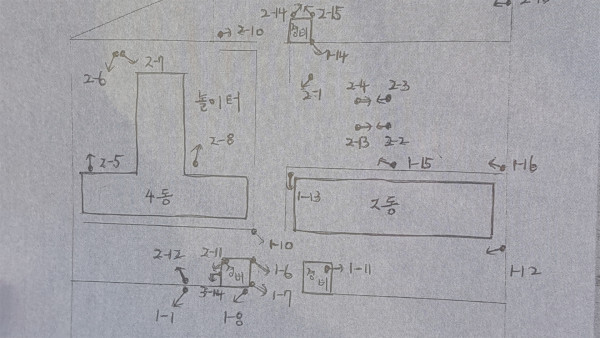 2-14
2-15
2-10
경비
1-14
2-7
2-6
놀이터
2-1
2-4
2-3
2-13
2-2
2-5
2-8
1-15
1-16
4동
1-13
2동
1-10
2-12
2-11
경비
1-6
경비
1-11
1-12
1-7
1-1
1-8